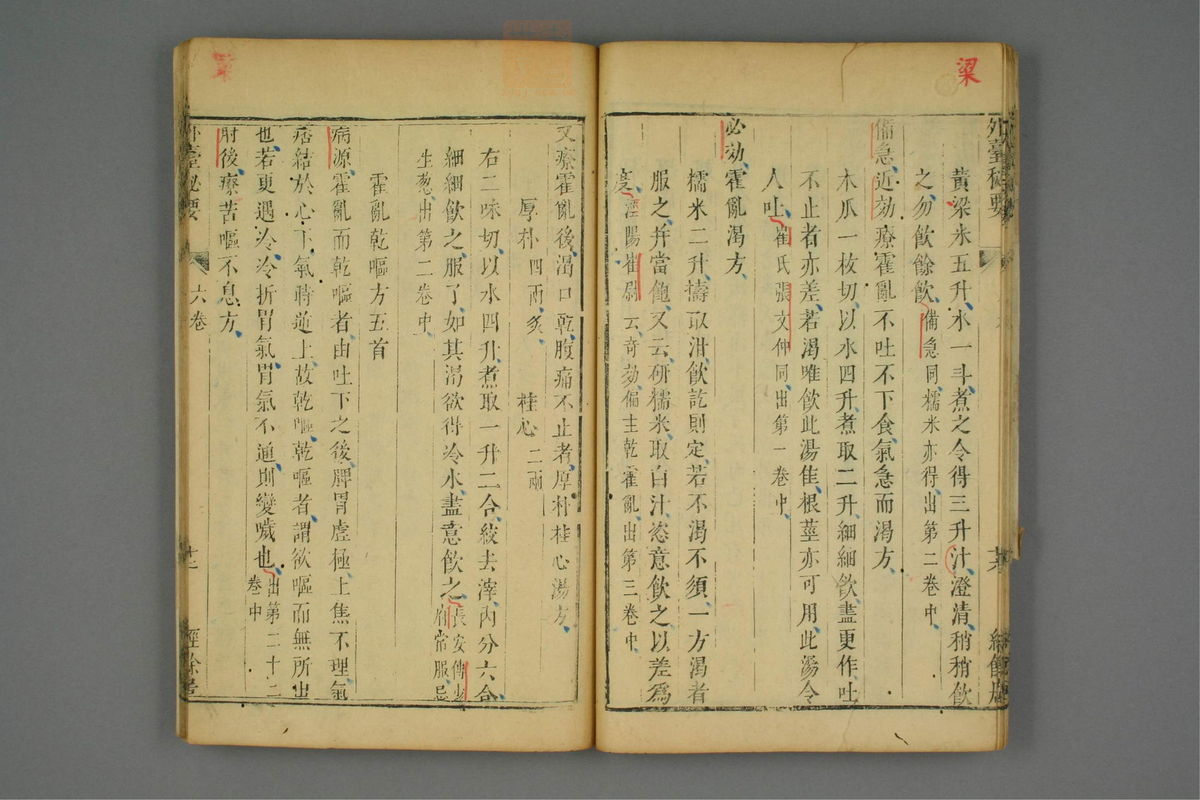 粱
外臺秘要
黃粱米五升水一斗煮之令得三升汁澄清稍稍飲
之勿飲餘飲備急同糯米亦得出第二卷中
備急近効療霍亂不吐不下食氣急而渴方
木瓜一枚切以水四升煮取二升細細飲盡更作吐
不止者亦差若渴唯飲此湯佳根莖亦可用此湯令
人吐崔氏張文仲同出第一卷中
必効霍亂渴方
糯米二升擣取泔飲訖則定若不渴不須一方渴者
服之并當飽又云研糯米取白汁恣意飲之以差爲
度涇陽崔尉云奇効偏主乾霍亂出第三卷中
又療霍亂後渴口乾腹痛不止者厚朴桂心湯方
厚朴四兩炙 桂心二兩
右二味切以水四升煮取一升二合絞去滓內分六合
細細飲之服了如其渴欲得冷水盡意飲之張安傅少
府常服忌
生葱出第二卷中
霍亂乾嘔方五首
病源霍亂而乾嘔者由吐下之後脾胃虛極上焦不理氣
痞結於心下氣時逆上故乾嘔乾嘔者謂欲嘔而無所出
也若更遇冷冷折胃氣胃氣不通則變噦也出第二十二
卷中
肘後療苦嘔不息方
外臺秘要
六卷
經餘居